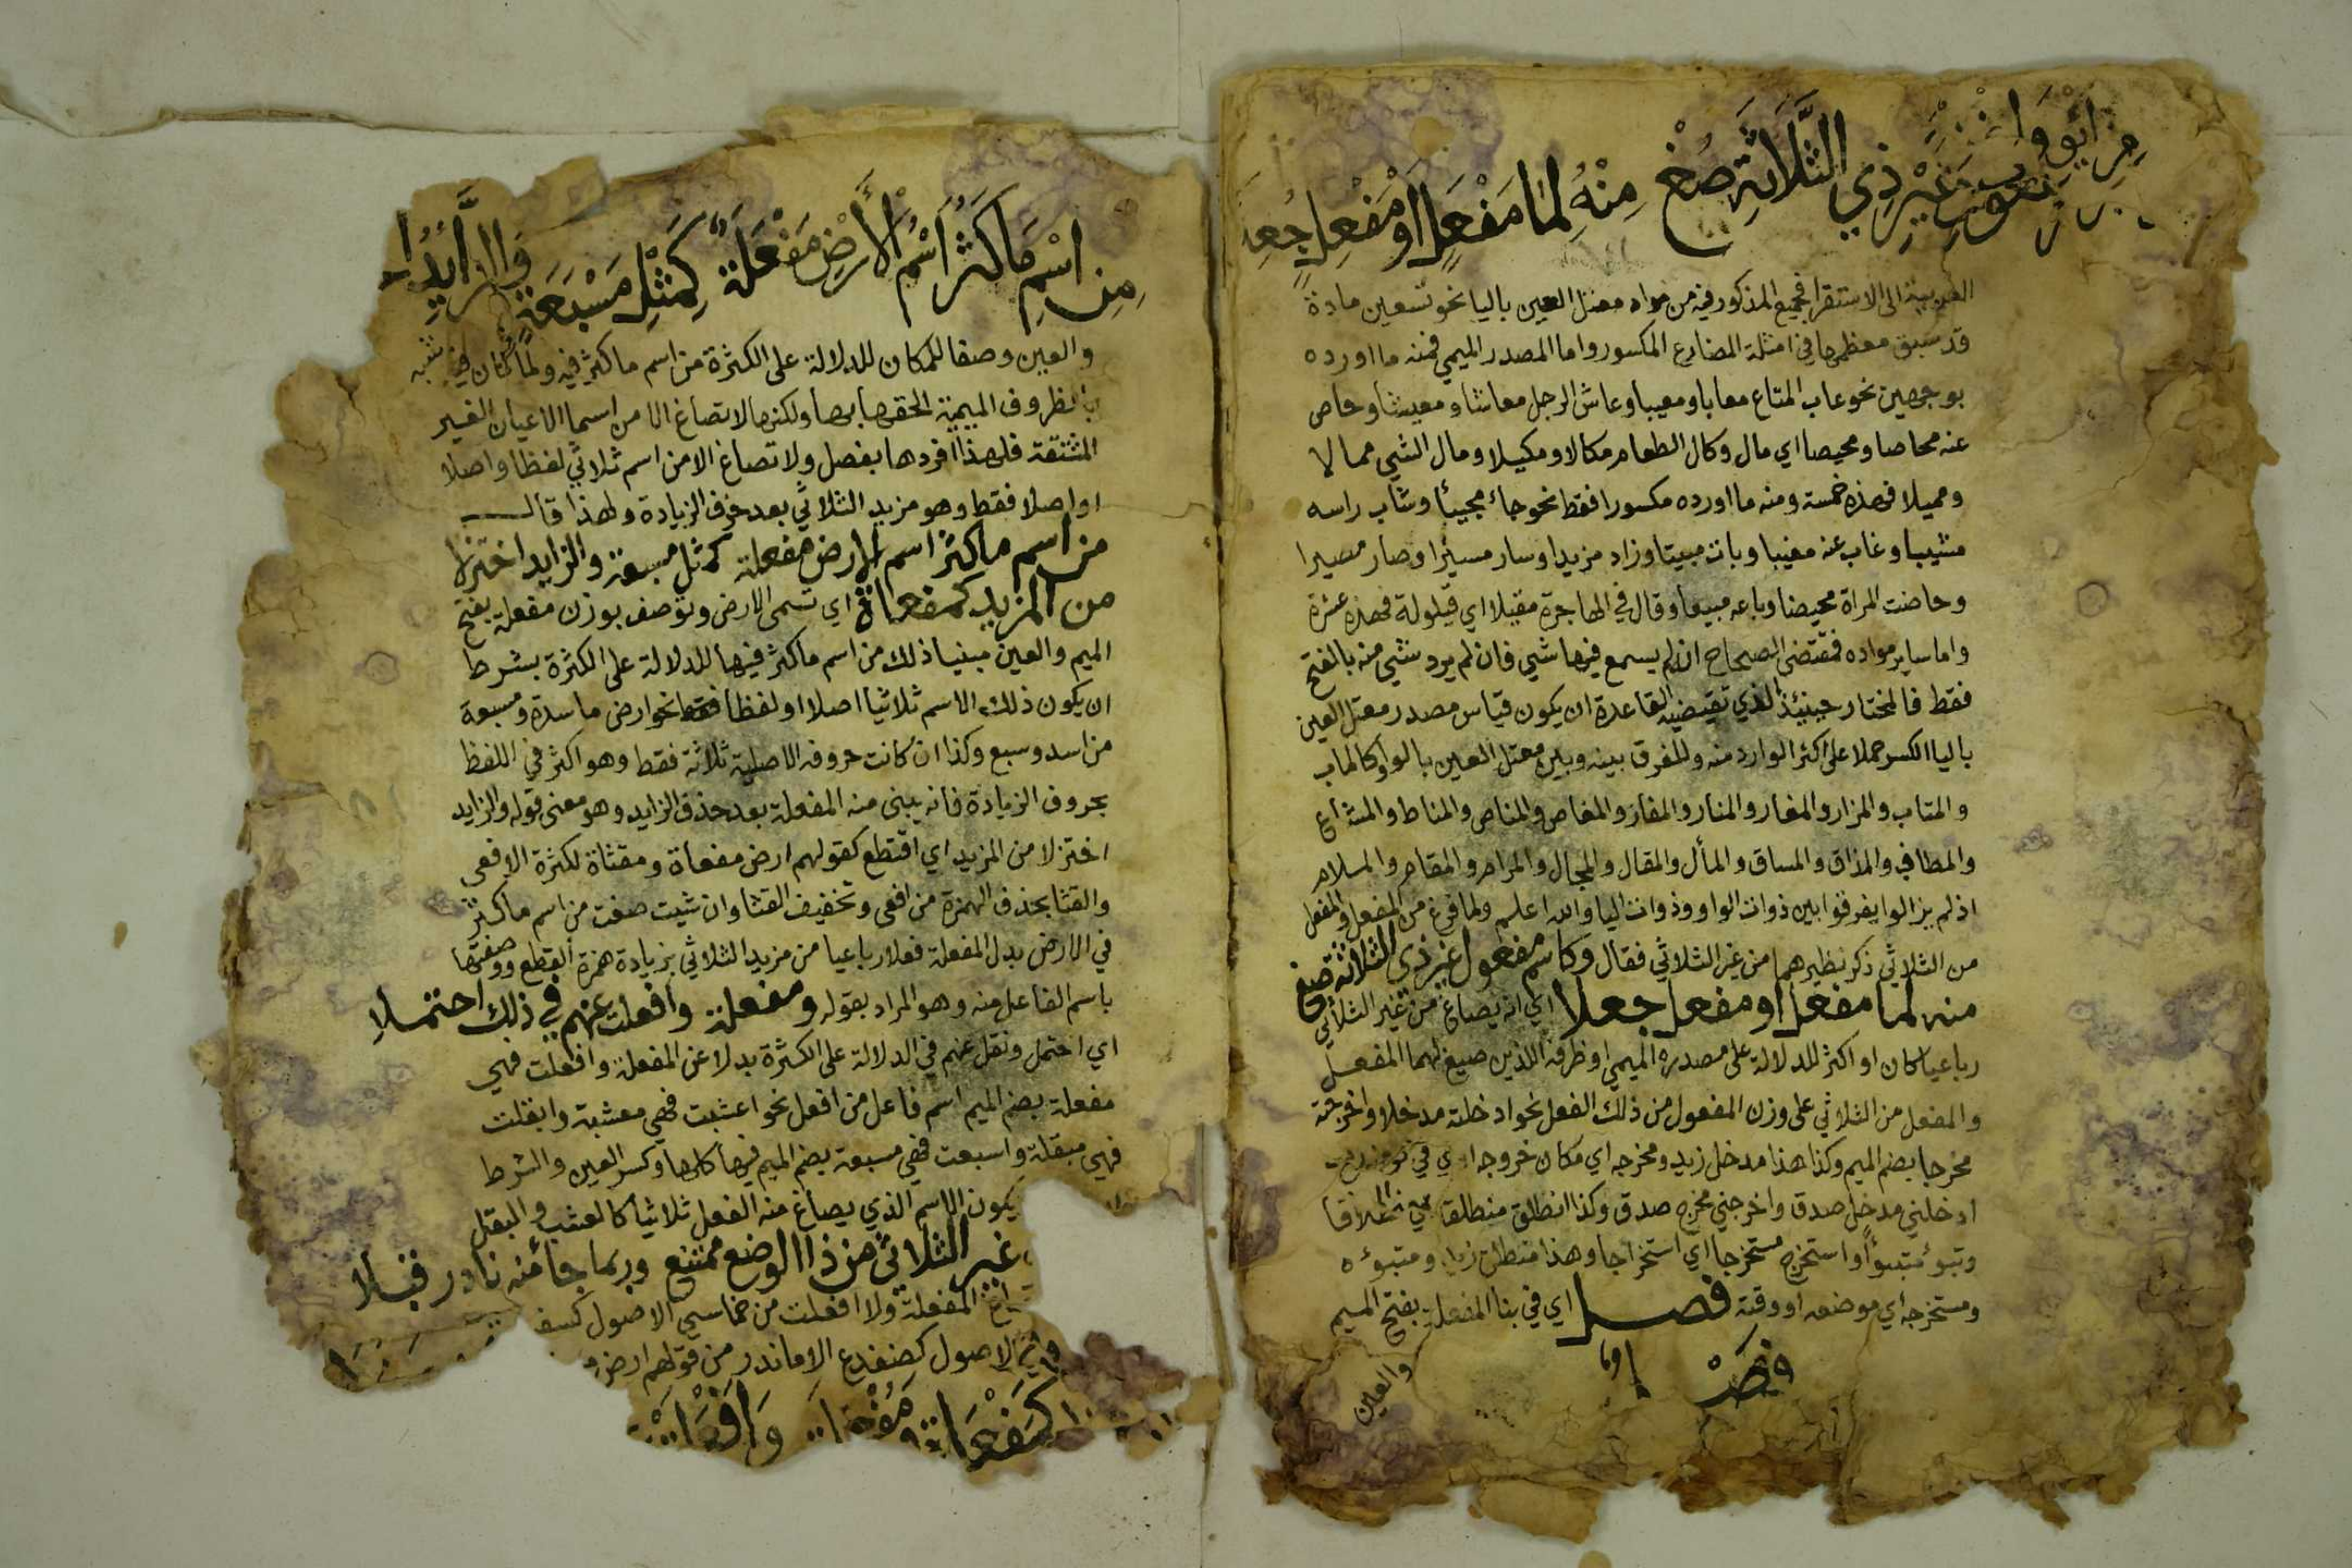 غير ذي الثلاثة صُغ مِنْهُ لما مَفْعَل اَوْ مَفْعِل جُعِ
العربية الى الاستقرا فجميع المذكور فيه من مواد معتل العين باليا نحو تسعين مادة
قد سبق معظمها في امثلة المضارع المكسور واما المصدر الميمي فمنه ما اورده
بوجهين نحو عاب المتاع معابا ومعيبا وعاش الرجل معاشا ومعيشا وحاص
عنه محاصا ومحيصا اي مال وكال الطعام مكالا ومكيلا ومال الشي ممالا
ومميلا فهذه خمسة ومنه ما اورده مكسورا فقط نحو جاء مجيئا وشاب راسه
مشيبا وغاب عنه مغيبا وبات مبيتا وزاد مزيدا وسار مسيرا وصار مصيرا
وحاضت المراة محيضا وباعه مبيعا وقال في الهاجرة مقيلا اي قيلولة فهذه عشرة
واما ساير مواده فمقتضى الصحاح ان لم يسمع فيها شي فان لم يرد شي منه بالفتح
فقط فالمختار حينئذ الذي تقتضيه القاعدة ان يكون قياس مصدر معتل العين
باليا الكسر حملا على اكثر الوارد منه وللفرق بينه وبين معتل العين بالواو كالماب
والمتاب والمزار والمغار والمنار والمفاز والمغاص والمناص والمناط والمشاع
والمطاف والمذاق والمساق والمأل والمقال والمجال والمرام والمقام والملام
اذ لم يزالوا يفرقوا بين ذوات الواو وذوات اليا والله اعلم ولما فرغ من المفعل والمفعل
من الثلاثي ذكر نظيرهما من غير الثلاثي فقال وكاسم مفعول غير ذي الثلاثة صغ
منه لما مفعل او مفعل جعلا اي انه يصاغ من غير الثلاثي
رباعيا كان او اكثر للدلالة على مصدره الميمي او ظرفه اللذين صيغ لهما المفعل
والمفعل من الثلاثي على وزن المفعول من ذلك الفعل نحو ادخلته مدخلا واخرجته
مخرجا بضم الميم وكذا هذا مدخل زيد ومخرجه اي مكان خروجه
ادخلني مدخل صدق واخرجني مخرج صدق وكذا انطلق منطلقا انطلاقا
وتبوء متبوءا واستخرج مستخرجا اي استخراجا وهذا منطلق زيد ومتبوءه
ومستخرجه اي موضعه او وقته فصل اي في بنا المفعلة بفتح الميم
والعين
مِنِ اسْمِ مَا كَثُرَ اسْمُ الأَرْضِ مَفْعَلَةٌ كَمِثْلِ مَسْبَعَةٍ وَالزَّايِدُ اخ
والعين وصفا للمكان للدلالة على الكثرة من اسم ما كثر فيه ولما كان شبه
بالظروف الميمية الحقها بها ولكنها لا تصاغ الا من اسما الاعيان الغير
المشتقة فلهذا افردها بفصل ولا تصاغ الا من اسم ثلاثي لفظا واصلا
او اصلا فقط وهو مزيد الثلاثي بعد حذف الزيادة ولهذا قال
من اسم ما كثر اسم الارض مفعلة كمثل مسبعة والزايد اختزلا
من المزيد كمفعاة اي تسمى الارض وتوصف بوزن مفعلة بفتح
الميم والعين مبنيا ذلك من اسم ما كثر فيها للدلالة على الكثرة بشرط
ان يكون ذلك الاسم ثلاثيا اصلا او لفظا فقط نحو ارض ماسدة ومسبعة
من اسد وسبع وكذا ان كانت حروفه الاصلية ثلاثة فقط وهو اكثر في اللفظ
بحروف الزيادة فانه يبنى منه المفعلة بعد حذف الزايد وهو معنى قوله والزايد
اختزلا من المزيد اي اقتطع كقولهم ارض مفعاة ومقثاة لكثرة الافعى
والقثا بحذف الهمزة من افعى وتخفيف القثا وان شيت صغت من اسم ما كثر
في الارض بدل المفعلة فعلا رباعيا من مزيد الثلاثي بزيادة همزة القطع ووصفتها
باسم الفاعل منه وهو المراد بقوله ومفعلة وافعلت عنهم في ذلك احتملا
اي احتمل ونقل عنهم في الدلالة على الكثرة بدلا عن المفعلة وافعلت فهي
مفعلة بضم الميم اسم فاعل من افعل نحو اعشبت فهي معشبة وابقلت
فهي مبقلة واسبعت فهي مسبعة بضم الميم فيها كلها وكسر العين والشرط
يكون الاسم الذي يصاغ منه الفعل ثلاثيا كالعشب والبقل
غير الثلاثي من ذا الوضع ممتنع وربما جا منه نادر قبلا
المفعلة ولا افعلت من خماسي الاصول كسف
الاصول كضفدع الا ما ندر من قولهم ارض
كَمَفْعَاةٍ